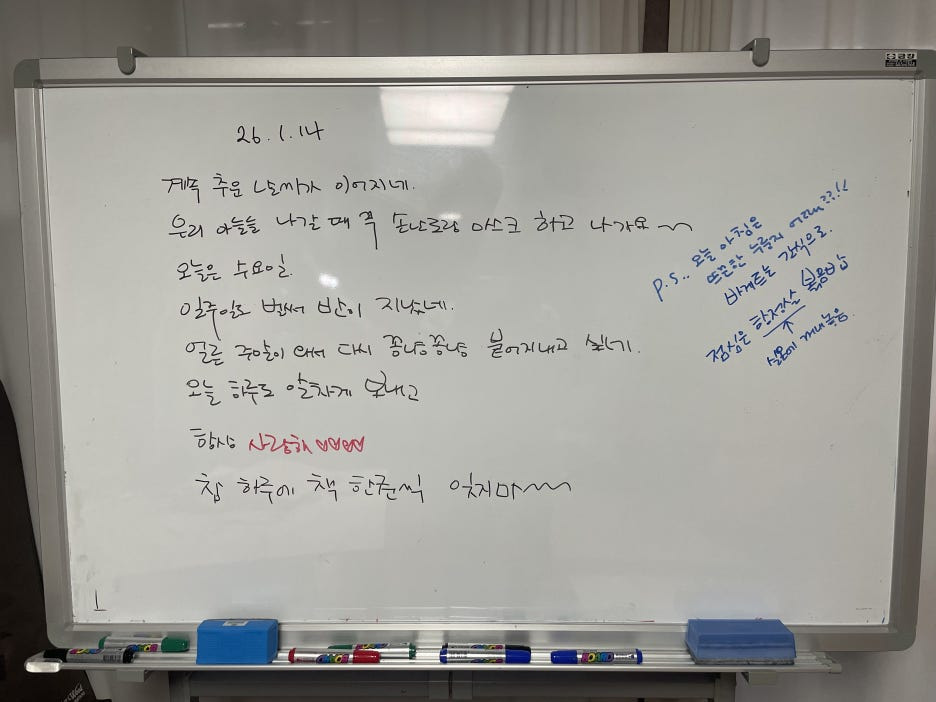 26.1.14
계속 추운 날씨가 이어지네.
우리 아들들 나갈 때 꼭 손난로랑 마스크 하고 나가요~~
오늘은 수요일.
일주일도 벌써 반이 지났네.
얼른 주말이 돼서 다시 꽁냥꽁냥 붙어지내고 싶네.
오늘 하루도 알차게 보내고
항상 사랑해♡♡♡♡
참 하루에 책 한권씩 잊지마~~~
P.S.. 오늘 아침은
뜨끈한 누룽지 어때??!!
바게트는 간식으로.
점심은 항정살 볶음밥
↑
실온에 꺼내놓음.
금강